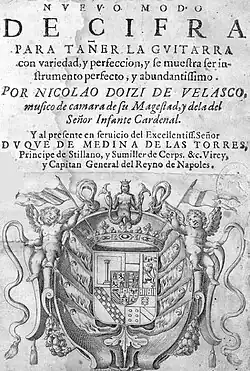 NVEVO MODO
DE CIFRA
PARA TAÑER LA GVITARRA
con variedad, y perfeccion, y se muestra ser in-
strumento perfecto, y abundantissimo.
POR NICOLAO DOIZI DE VELASCO,
musico de camara de su Magestad, y de la del
Señor Infante Cardenal.
Y al presente en seruicio del Excellentiss. Señor
DVQVE DE MEDINA DE LAS TORRES,
Principe de Stillano, y Sumiller de Corps. &c. Virey,
y Capitan General del Reyno de Napoles.